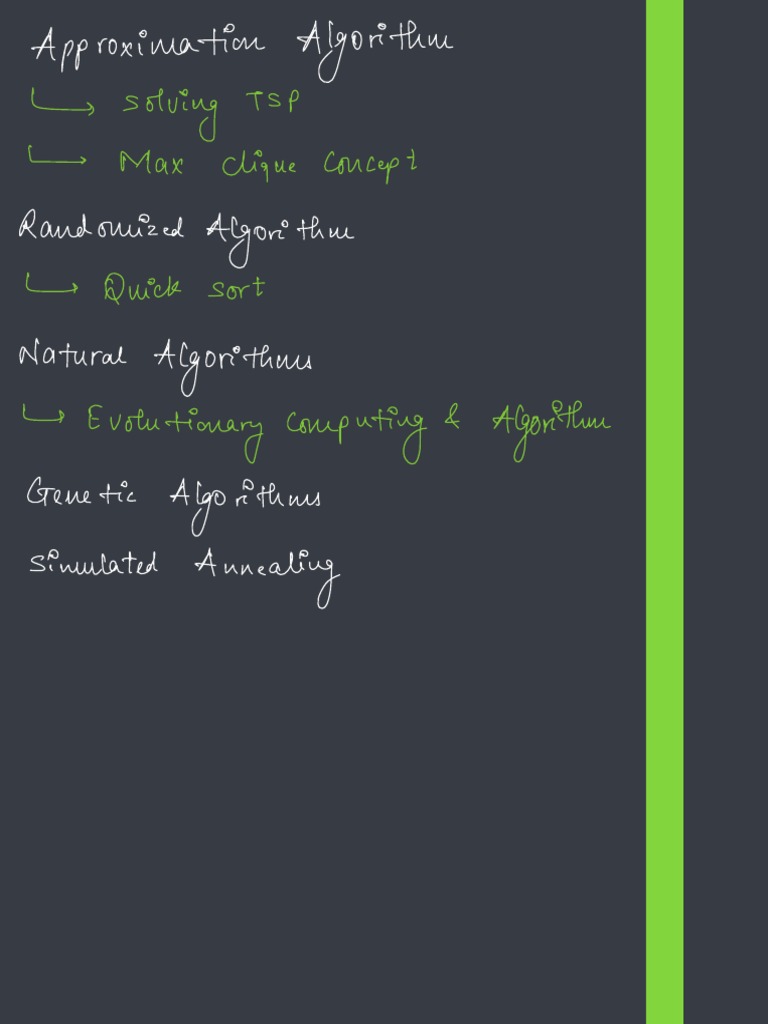 Approximation Algorithm
Solving TSP
Max Clique Concept
Randomized Algorithm
Quick Sort
Natural Algorithms
Evolutionary Computing & Algorithm
Genetic Algorithms
Simulated Annealing